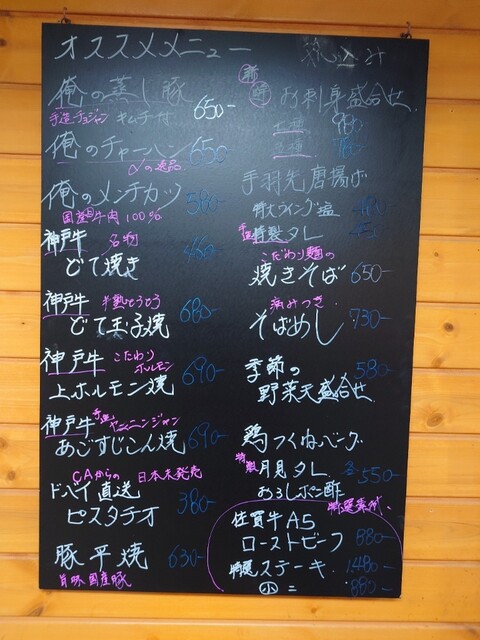 オススメメニュー
税込み
俺の蒸し豚
手造チョジャン キムチ付 650-
俺のチャーハン 650-
〆の逸品
俺のメンチカツ 580-
国産牛肉100%
神戸牛 名物
どて焼き 460-
神戸牛 半熟とろとろ
どて玉子焼 680-
神戸牛 こだわりホルモン
上ホルモン焼 690-
神戸牛 手造ヤンニンジャン
あごすじこん焼 690-
CAからの 日本未発売
ドバイ直送
ピスタチオ 380-
豚平焼 630-
旨味国産豚
お刺身盛合せ
手羽先唐揚げ
特大ライング塩
手造特製タレ
こだわり麺の
焼きそば 650-
病みつき
そばめし 730-
季節の 580-
野菜天盛合せ
鶏つくねバーグ
特製月見タレ 各550-
おろしポン酢
特選素材
佐賀牛A5
ローストビーフ 880-
特選ステーキ 1,480-
小 〃 880-